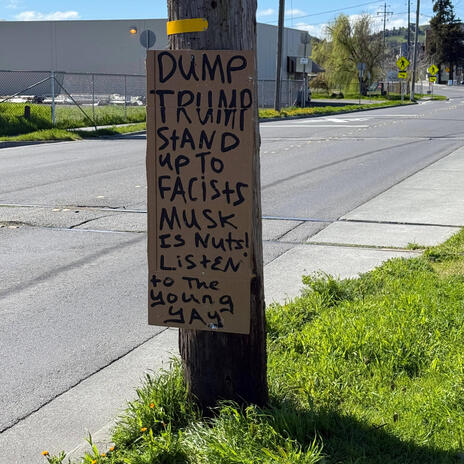 DUMP
TRUMP
StAND
UP TO
FACIStS
MUSK
IS NUtS!
LIStEN
to THE
young
yAy